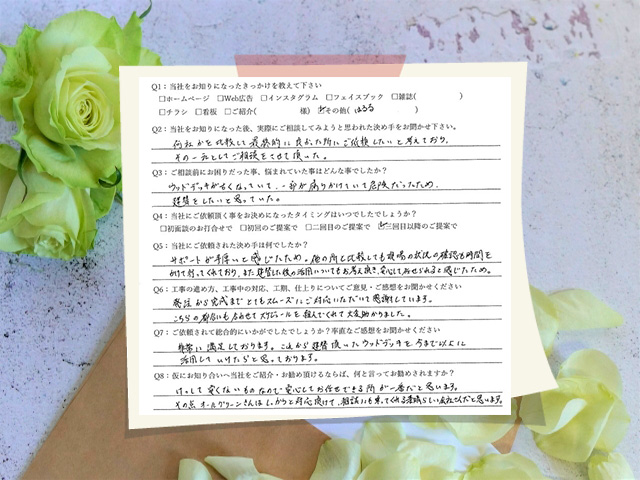 Q1：当社をお知りになったきっかけを教えて下さい
□ホームページ □Web広告 □インスタグラム □フェイスブック □雑誌（ ）
□チラシ □看板 □ご紹介（ 様）☑その他（ はるる ）
Q2：当社をお知りになった後、実際にご相談してみようと思われた決め手をお聞かせ下さい。
何社かを比較し最終的に良かった所にご依頼したいと考えており、
その一社としてご相談をさせて頂いた。
Q3：ご相談前にお困りだった事、悩まれていた事はどんな事でしたか？
ウッドデッキが古くなっていて、一部が腐りかけていて危険だったため、
建替をしたいと思っていた。
Q4：当社にご依頼頂く事をお決めになったタイミングはいつでしたでしょうか？
□初面談のお打合せで □初回のご提案で □二回目のご提案で ☑三回目以降のご提案で
Q5：当社にご依頼された決め手は何でしたか？
サポートが手厚いと感じたため。他の所と比較しても現場の状況の確認も時間を
かけて行ってくれており、また建替した後の活用についてもお考え頂き、安心しておまかせられると感じたため。
Q6：工事の進め方、工事中の対応、工期、仕上りについてご意見・ご感想をお聞かせください
発注から完成までとてもスムーズにご対応いただいて感謝しています。
こちらの都合にも合わせてスケジュールを組んでくれて大変助かりました。
Q7：ご依頼されて総合的にいかがでしたでしょうか？率直なご感想をお聞かせください
非常に満足しております。これから建替頂いたウッドデッキを今まで以上に
活用していけたらと思っております。
Q8：仮にお知り合いへ当社をご紹介・お勧め頂けるならば、何と言ってお勧めされますか？
けっして安くないものなので安心してお任せできる所が一番だと思います。
その点オールグリーンさんはしっかりと対応頂けて、相談にも乗ってくれる素晴らしい会社さんだと思います。